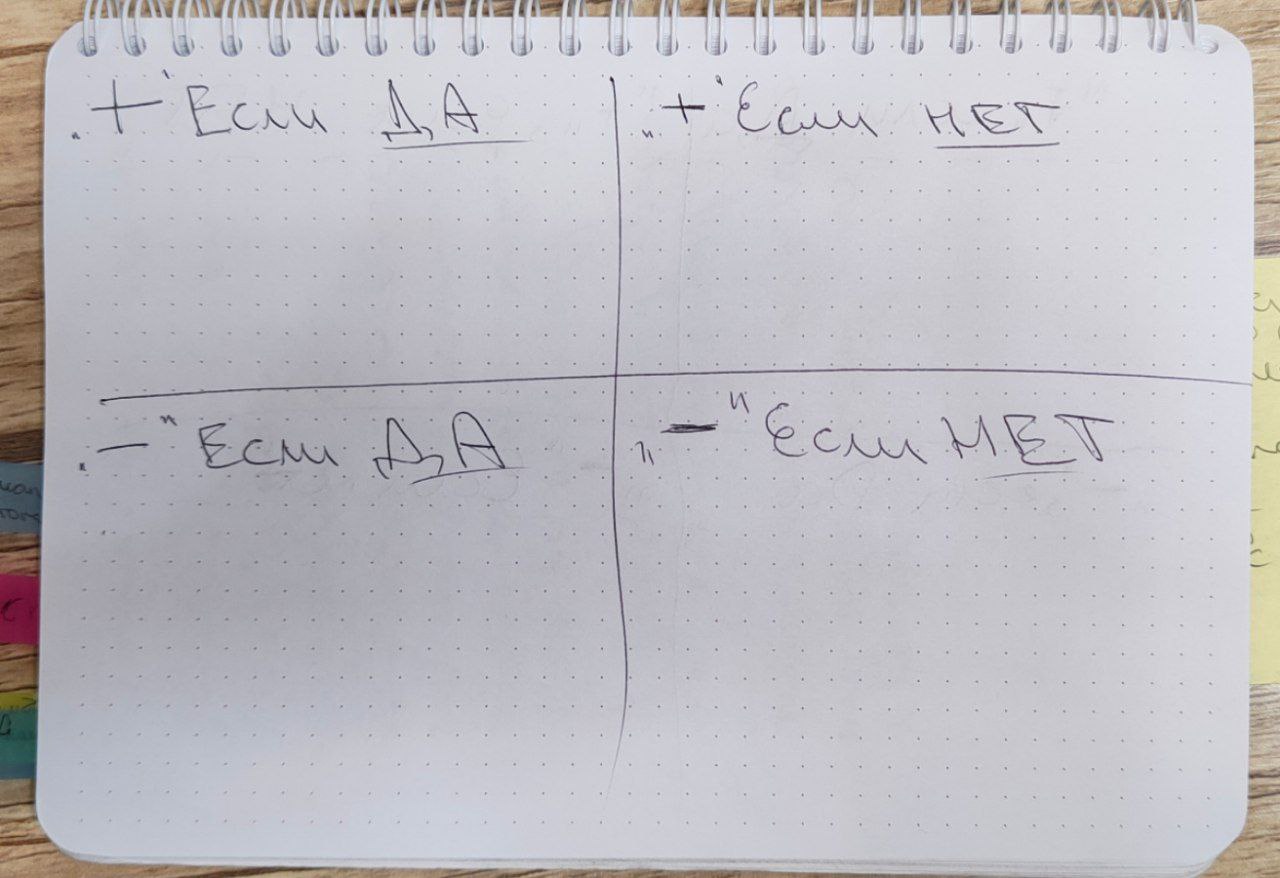 „+“ Если ДА
„+“ Если НЕТ
„-“ Если ДА
„-“ Если НЕТ